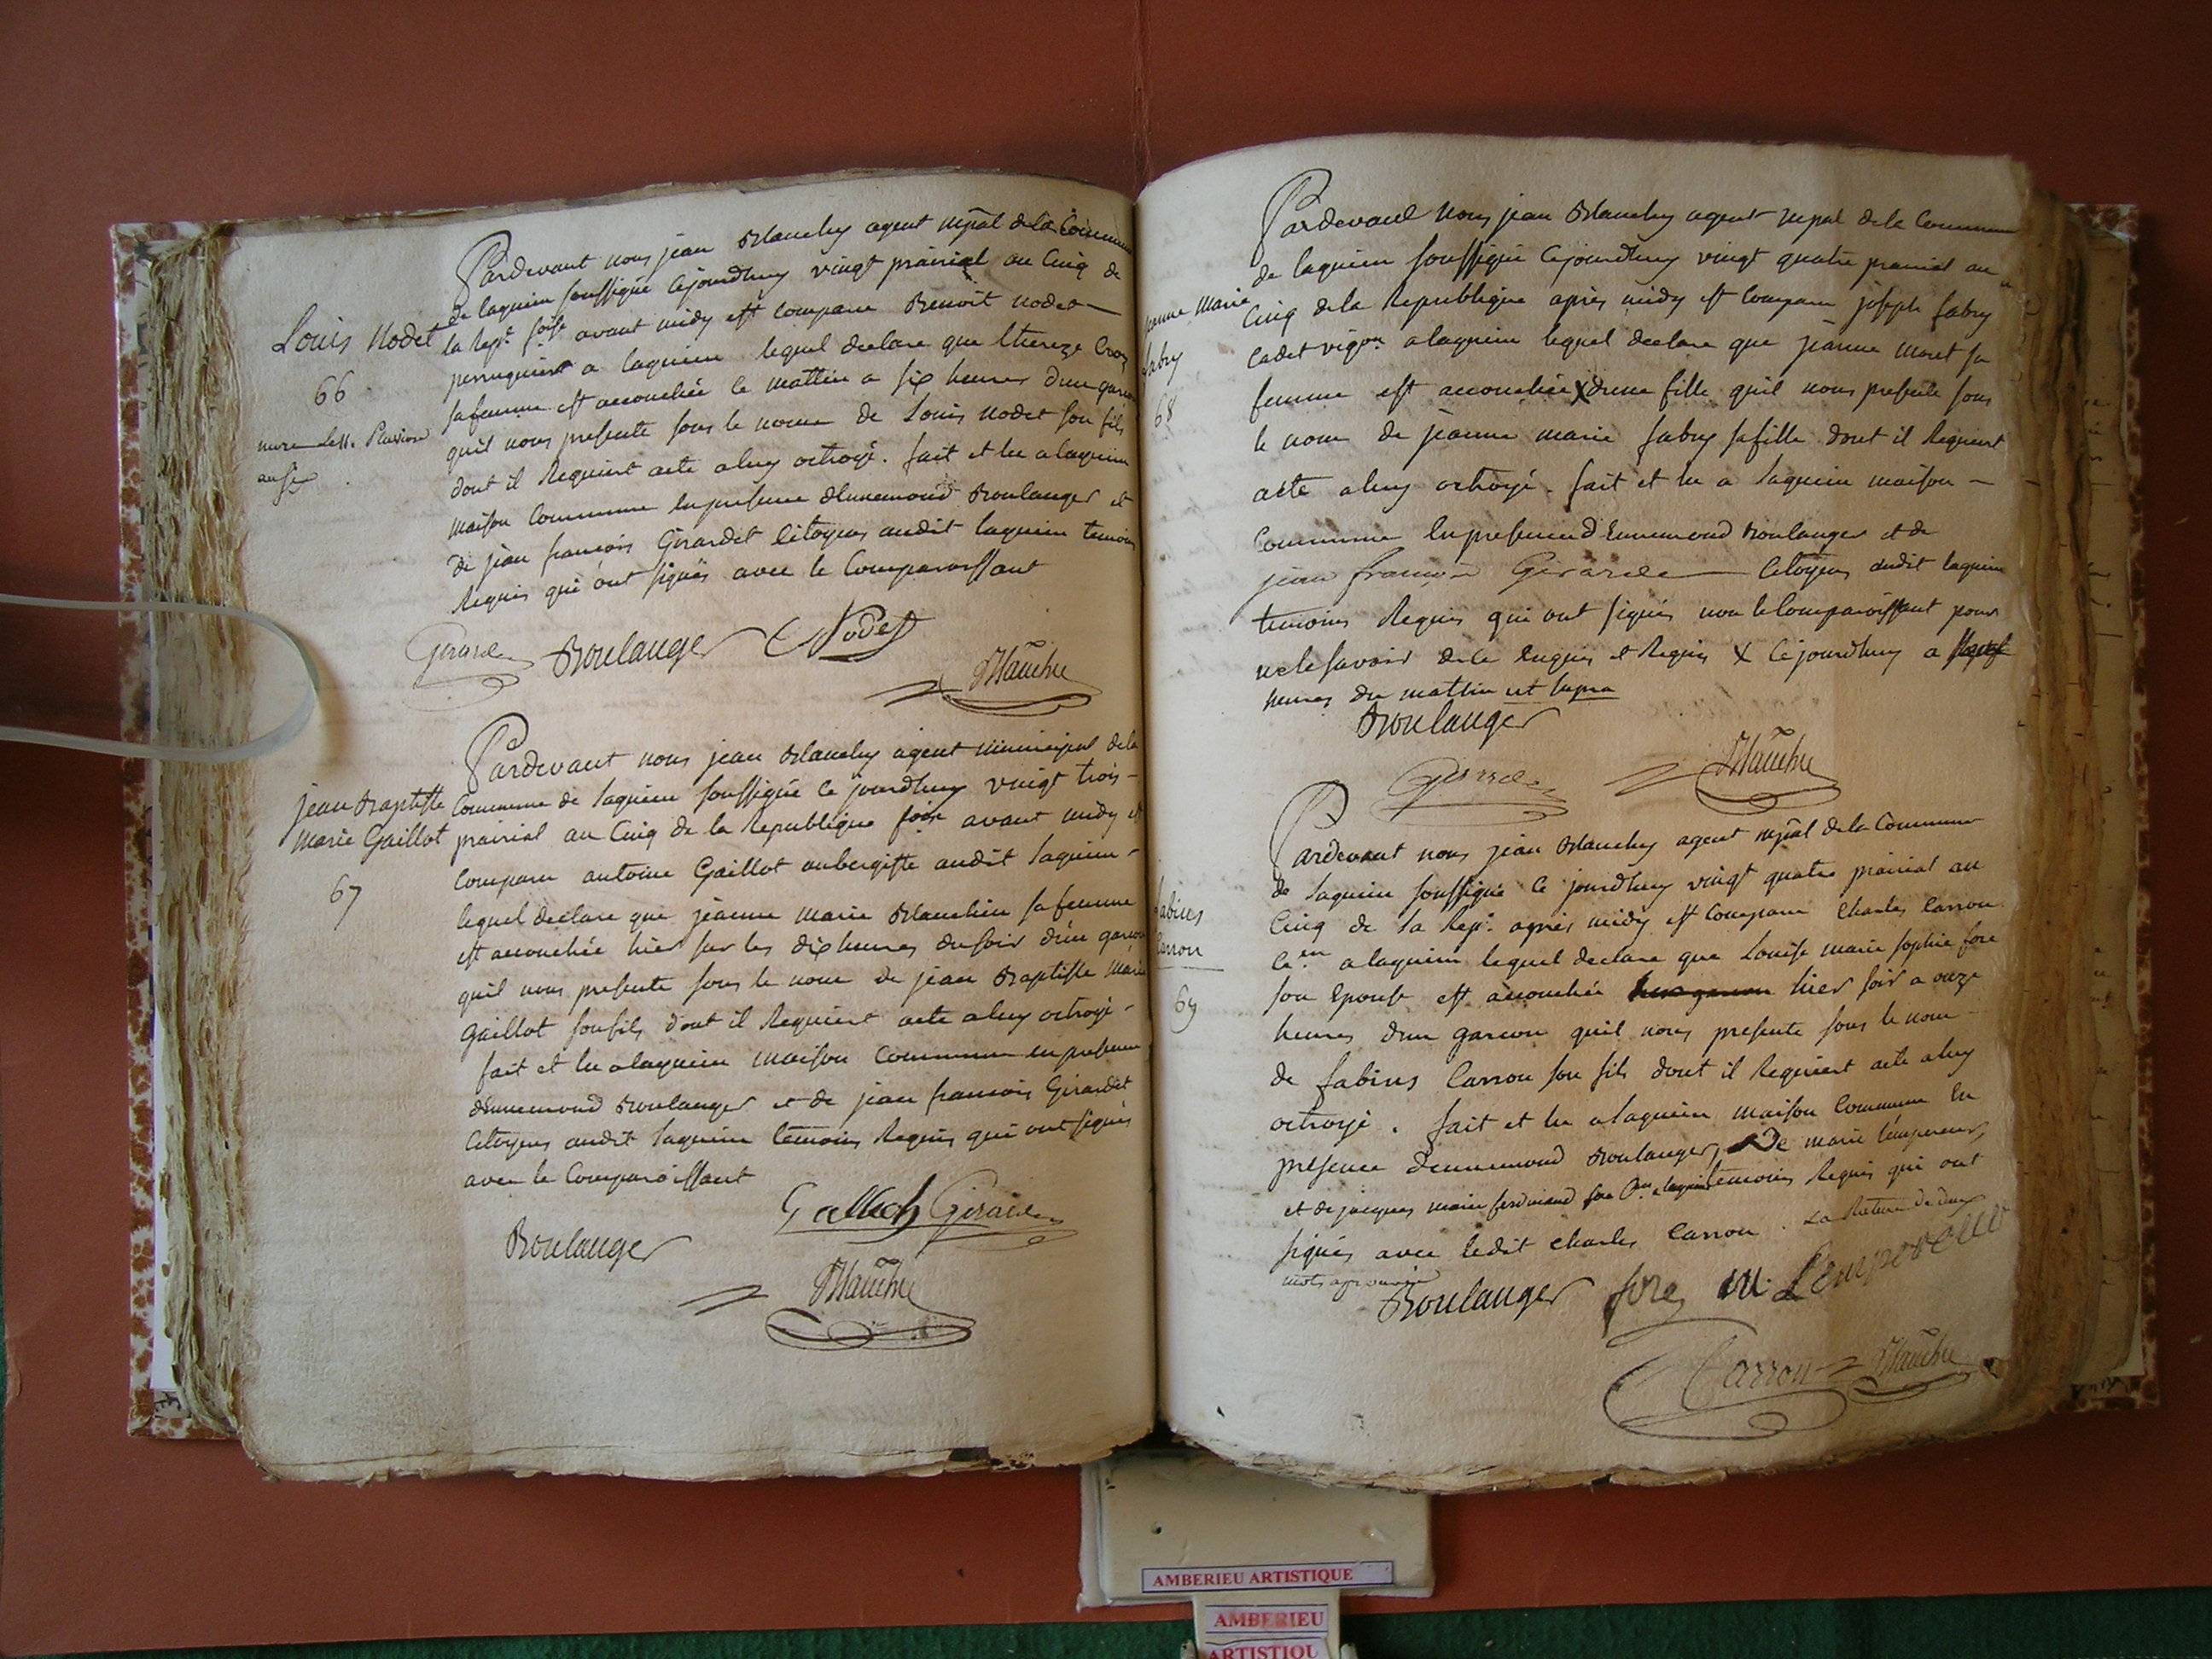 Pardevant nous jean Blanchy agent mpal de la Commune
de lagnieu soussigné cejourdhuy vingt prairial an Cinq de
la Rep.e avant midy est comparu Benoît nodet
perruquier a lagnieu lequel declare que thereze Croz
sa femme est accouchée ce mattin a six heures dun garcon
quil nous presente sous le nome de Louis nodet son fils
dont il Requiert acte a luy octroyé. fait et lu a lagnieu
maison Commune en presence dEnnemond Boulanger et
de jean francois Girardet Citoyens audit lagnieu temoins
Requis qui ont signés avec le Comparoissant
Louis Nodet
66
an six
Boulanger Nodet
Blanchy
Pardevant nous jean Blanchy agent municipal dela
Commune de lagnieu soussigné ce jourdhuy vingt trois
prairial an Cinq de la Republique avant midy est
Comparu antoine Gaillot aubergiste audit lagnieu
lequel declare que jeanne marie Blanchin sa femme
est accouchée hier sur les dix heures du soir dun garcon
quil nous presente sous le nom de jean Baptiste marie
Gaillot son fils dont il Requiert acte a luy octroyé
fait et lu a lagnieu maison Commune en presence
dEnnemond Boulanger et de jean francois Girardet
Citoyens audit lagnieu temoins Requis qui ont signés
avec le Comparoissant
jean Baptiste
Marie Gaillot
67
Boulanger
Blanchy
Pardevant Nous jean Blanchy agent mpal de la Commune
de lagnieu soussigné cejourdhuy vingt quatre prairial an
Cinq dela Republique apres midy est Comparu joseph fabry
Cadet vigon a lagnieu lequel declare que jeanne moret sa
femme est accouchée X dune fille quil nous presente sous
le nom de jeanne marie fabry sa fille dont il Requiert
acte a luy octroyé. fait et lu a lagnieu maison
Commune en presence dEnnemond Boulanger et de
jean françois Girardet Citoyens dudit lagnieu
temoins Requis qui ont signés non le Comparoissant pour
ne le savoir de ce enquis et Requis X Cejourdhuy a
heures du mattin ut supra
Marie
fabry
68
Boulanger
Blanchy
Pardevant nous jean Blanchy agent mpal de la Commune
de lagnieu soussigné ce jourdhuy vingt quatre prairial an
Cinq de la Rep.e apres midy est Comparu Charles Carron
a lagnieu lequel declare que Louise marie sophie fore
son Epouse est accouchée hier soir a onze
heures dun garcon quil nous presente sous le nom
de fabius Carron son fils dont il Requiert acte a luy
octroyé. fait et lu a lagnieu maison Commune en
presence dennemond Boulanger, De marie lempereur,
et de jacques marie ferdinand fore a lagnieu temoins Requis qui ont
signés avec ledit Charles Carron. La Rature de deux
mots aprouvée
fabius
Carron
69
Boulanger fore M. Lempereur
Carron Blanchy
AMBERIEU ARTISTIQUE
AMBERIEU
ARTISTIQU